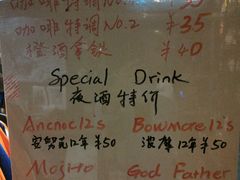 咖啡特调NO.2 ¥35
橙酒拿铁 ¥40
Special Drink
夜酒特价
Ancnoc12's Bowmore12's
安努克12年¥50 波摩12年¥50
Mojito God Father